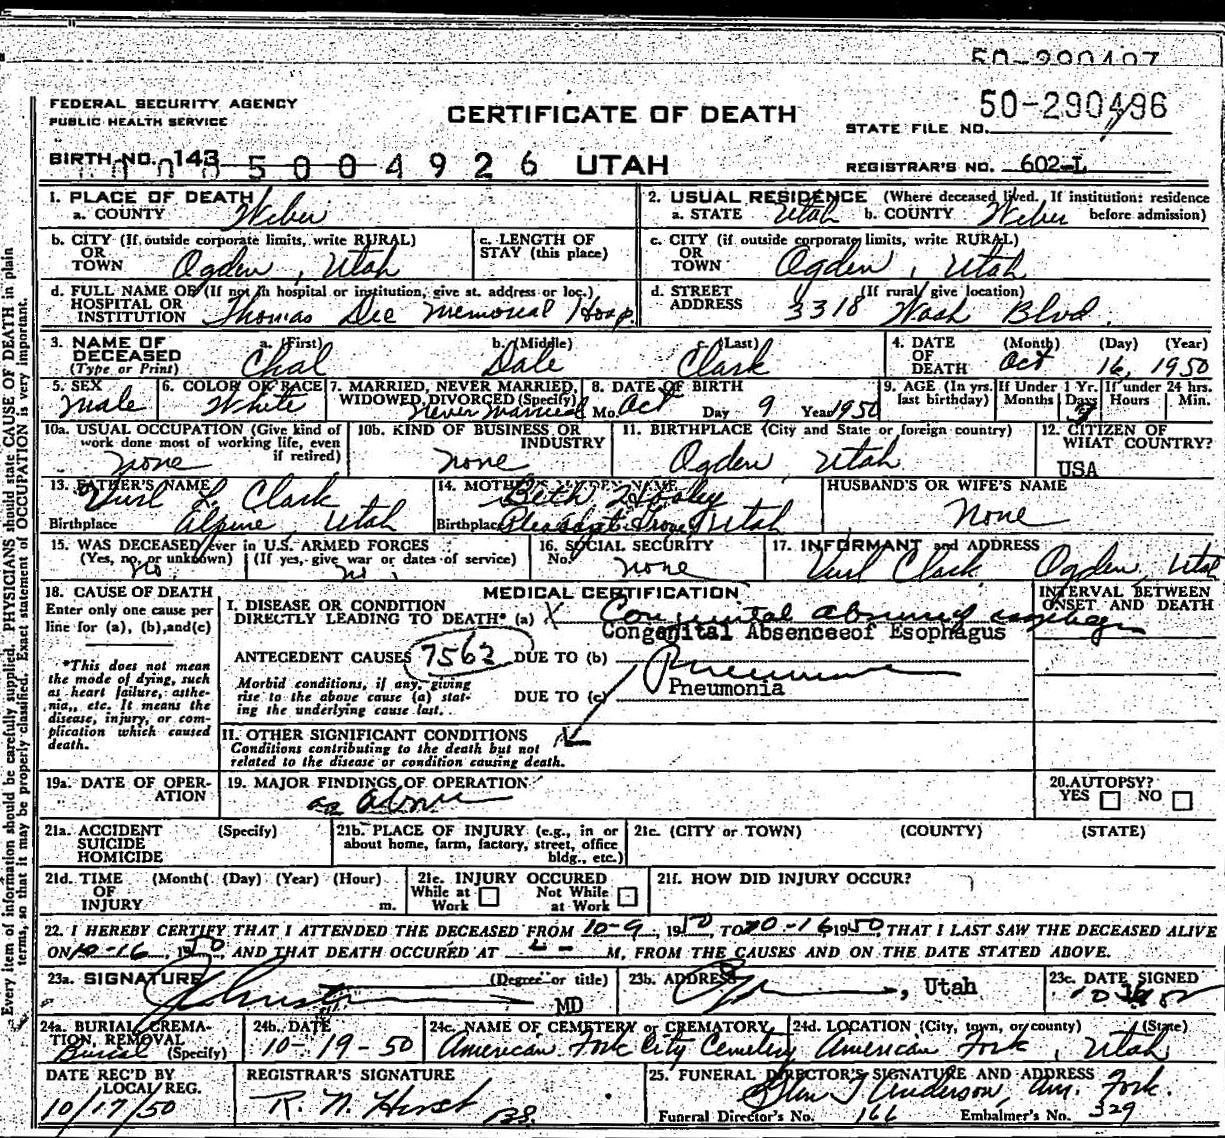 50-290497
FEDERAL SECURITY AGENCY
PUBLIC HEALTH SERVICE
CERTIFICATE OF DEATH
50-290496
STATE FILE NO.
BIRTH NO. 143 5004926 UTAH
REGISTRAR'S NO. 602-L
1. PLACE OF DEATH
a. COUNTY Weber
2. USUAL RESIDENCE (Where deceased lived. If institution: residence before admission)
a. STATE Utah b. COUNTY Weber
b. CITY (If outside corporate limits, write RURAL) OR TOWN Ogden, Utah
c. LENGTH OF STAY (this place)
c. CITY (if outside corporate limits, write RURAL) OR TOWN Ogden, Utah
d. FULL NAME OF (If not in hospital or institution, give st. address or loc.) HOSPITAL OR INSTITUTION Thomas Dee Memorial Hosp.
d. STREET ADDRESS (If rural give location) 3318 Wash Blvd.
3. NAME OF DECEASED (Type or Print) a. (First) Chal b. (Middle) Dale c. (Last) Clark
4. DATE OF DEATH (Month) (Day) (Year) Oct 16, 1950
5. SEX Male
6. COLOR OR RACE White
7. MARRIED, NEVER MARRIED, WIDOWED, DIVORCED (Specify) Never Married
8. DATE OF BIRTH Mo. Oct Day 9 Year 1950
9. AGE (In yrs. last birthday) If Under 1 Yr. Months Days 7 If under 24 hrs. Hours Min.
10a. USUAL OCCUPATION (Give kind of work done most of working life, even if retired) None
10b. KIND OF BUSINESS OR INDUSTRY None
11. BIRTHPLACE (City and State or foreign country) Ogden Utah
12. CITIZEN OF WHAT COUNTRY? USA
13. FATHER'S NAME Verl L. Clark
Birthplace Alpine, Utah
14. MOTHER'S MAIDEN NAME Beth Hooley
Birthplace Pleasant Grove, Utah
HUSBAND'S OR WIFE'S NAME None
15. WAS DECEASED ever in U.S. ARMED FORCES
(Yes, no, or unknown) (If yes, give war or dates of service)
no. no.
16. SOCIAL SECURITY No. none
17. INFORMANT and ADDRESS Verl Clark Ogden, Utah
18. CAUSE OF DEATH
Enter only one cause per line for (a), (b), and (c)
*This does not mean the mode of dying, such as heart failure, asthenia, etc. It means the disease, injury, or complication which caused death.
MEDICAL CERTIFICATION
INTERVAL BETWEEN ONSET AND DEATH
I. DISEASE OR CONDITION DIRECTLY LEADING TO DEATH* (a) X Congenital absence esophagus
Congenital Absenceeof Esophagus
ANTECEDENT CAUSES 7562 DUE TO (b) Pneumonia
Morbid conditions, if any, giving rise to the above cause (a) stating the underlying cause last.
DUE TO (c) Pneumonia
II. OTHER SIGNIFICANT CONDITIONS
Conditions contributing to the death but not related to the disease or condition causing death.
19a. DATE OF OPERATION
19. MAJOR FINDINGS OF OPERATION
as above
20. AUTOPSY? YES NO
21a. ACCIDENT SUICIDE HOMICIDE (Specify)
21b. PLACE OF INJURY (e.g., in or about home, farm, factory, street, office bldg., etc.)
21c. (CITY or TOWN) (COUNTY) (STATE)
21d. TIME OF INJURY (Month) (Day) (Year) (Hour) m.
21e. INJURY OCCURED While at Work Not While at Work
21f. HOW DID INJURY OCCUR?
22. I HEREBY CERTIFY THAT I ATTENDED THE DECEASED FROM 10-9, 1950 TO 10-16 1950 THAT I LAST SAW THE DECEASED ALIVE
ON 10-16, 1950, AND THAT DEATH OCCURED AT M, FROM THE CAUSES AND ON THE DATE STATED ABOVE.
23a. SIGNATURE (Degree or title) MD
23b. ADDRESS , Utah
23c. DATE SIGNED
24a. BURIAL, CREMATION, REMOVAL (Specify) Burial
24b. DATE 10-19-50
24c. NAME OF CEMETERY or CREMATORY American Fork City Cemetery
24d. LOCATION (City, town, or county) (State) American Fork, Utah
DATE REC'D BY LOCAL REG. 10/17/50
REGISTRAR'S SIGNATURE R. N. Hirst
25. FUNERAL DIRECTOR'S SIGNATURE AND ADDRESS Anderson, Am. Fork.
Funeral Director's No. 166 Embalmer's No. 329
Every item of information should be carefully supplied. PHYSICIANS should state CAUSE OF DEATH in plain
terms, so that it may be properly classified. Exact statement of OCCUPATION is very important.